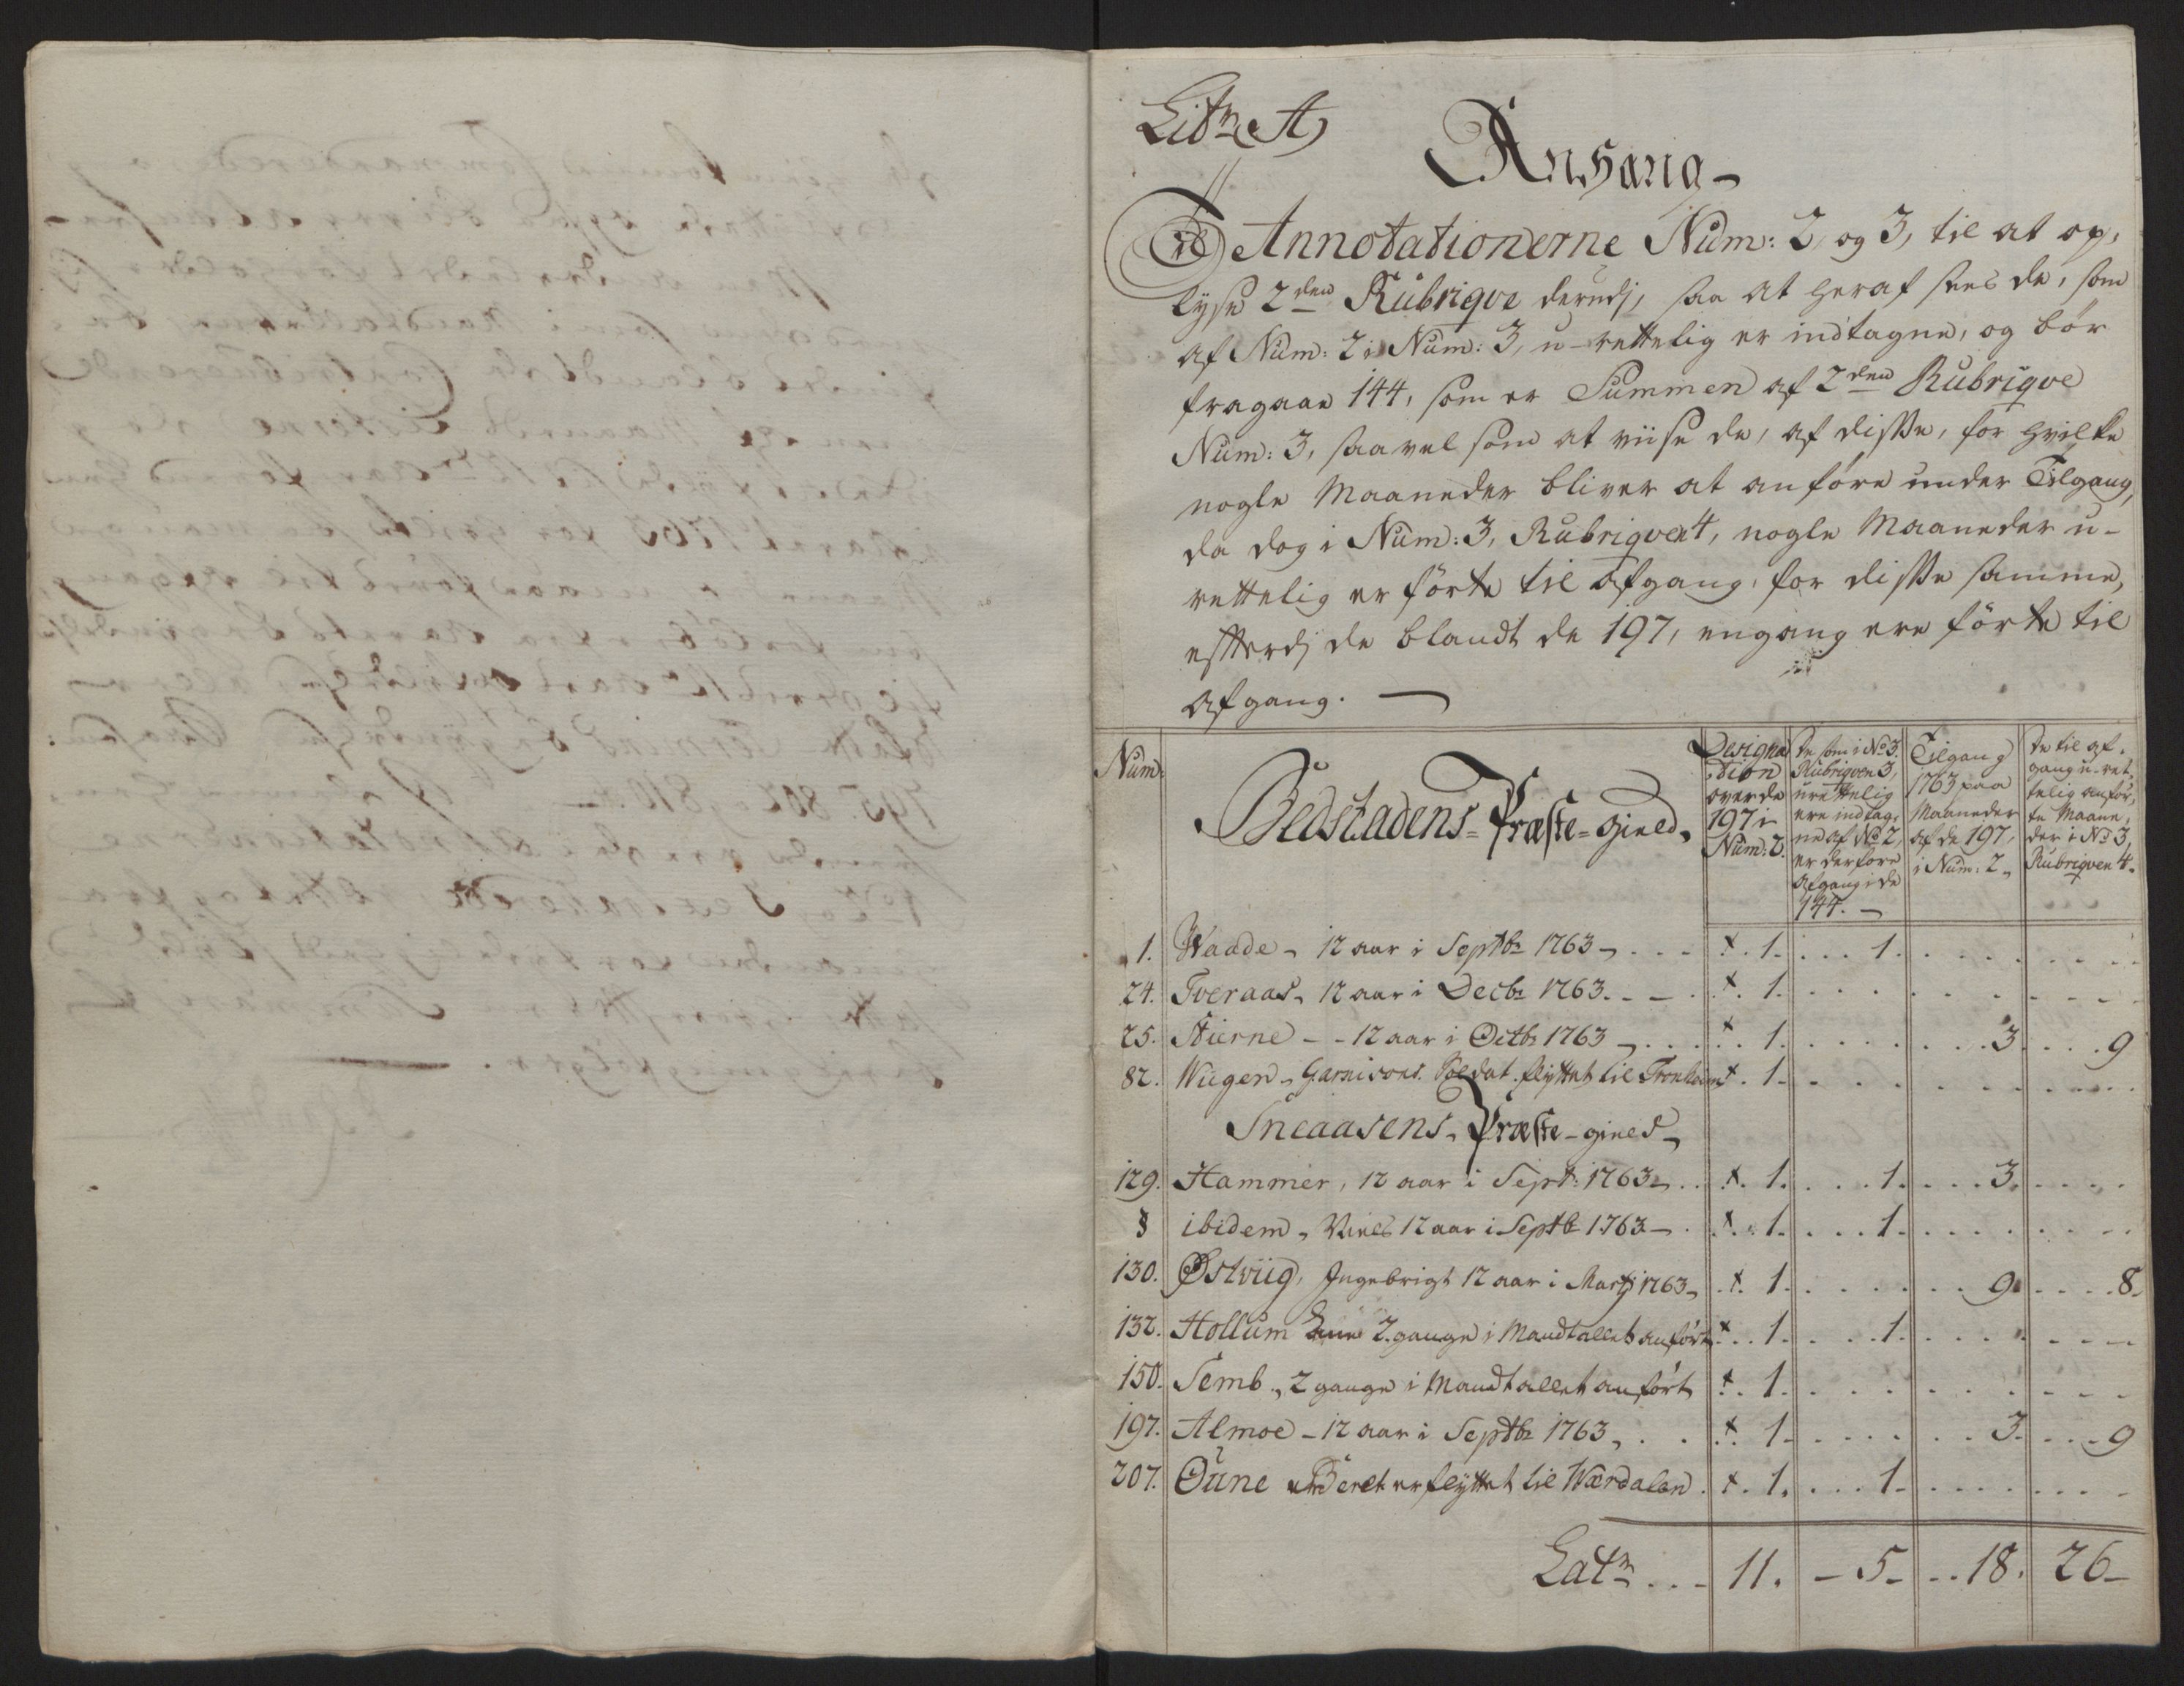 Litr A)
Anhang
Til Annotationerne Num: 2, og 3, til at op,
lyse 2den Rubriqve derudj, saa at heraf sees de, som
af Num: 2 i Num: 3, u-rettelig er indtagne, og bør
fragaae 144, som er Summen af 2den Rubriqve
Num: 3, saavel som at viise de, af disse, for hvilke
nogle Maaneder bliver at anføre under Tilgang,
da dog i Num: 3, Rubriqven 4, nogle Maaneder u-
rettelig er førte til afgang, for disse samme,
efterdj de blandt de 197, engang ere førte til
afgang. —
Num: Bedstadens-Præste-gield, Designa tion over de 197 i Num: 2. De som i No 3. Rubriqven 3, urettelig ere indtag, ne af No 2, er derfore afgang i de 144. — Tilgang 1763 paa Maaneder af de 197, i Num: 2, De til af, gang u-ret, telig anför, te Maane, der i No 3, Rubriqven 4.
1. Waade, 12 aar i Septbr 1763, . . . x. 1. . . . 1. . . .
24. Tveraas, 12 aar i Decbr 1763. . . x. 1. . . .
25. Stierne - - 12 aar i Octbr 1763, . . . x. 1. . . . 3. . . . 9
82. Wiigen, Garnisons Soldat. flyttet til Tronheim x. 1. . . .
Sneaasens, Præste-gield,
129. Hammer, 12 aar i Sept: 1763, . . x. 1. . . . 1. . . . 3. . . .
§ ibidem, Niels 12 aar i Septbr 1763 - . x. 1. . . . 1. . . .
130. Østviig, Ingebrigt 12 aar i Martj 1763, . x. 1. . . . 9. . . . 8.
132. Hollum 2 gange i Mandtallet anført x. . 1. . . . 1. . . .
150. Semb, 2 gange i Mandtallet anført x. 1. . . .
197. Almoe - 12 aar i Septbr 1763, . . x. 1. . . . 3. . . . 9
207. Oune Beret er flyttet til Wærdalen . x. 1. . . . 1. . . .
Latr . . - 11. - 5 - . . 18. 26 -